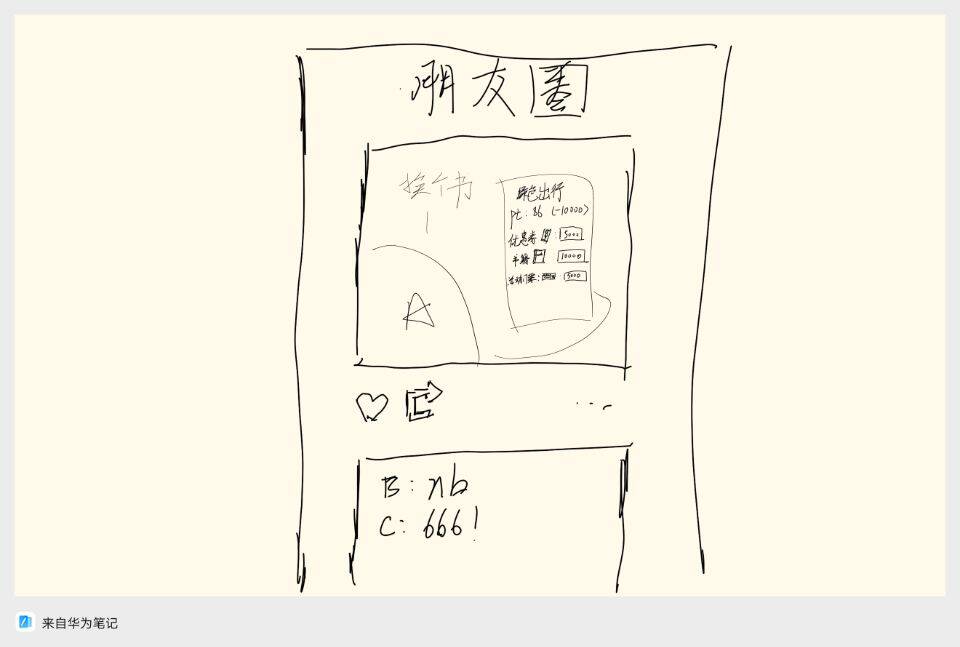 朋友圈
换个书
绿色出行
pt：86（-10000）
优惠券 5000
手办 10000
活动门票： 5000
A
B：nb
C：666！
来自华为笔记